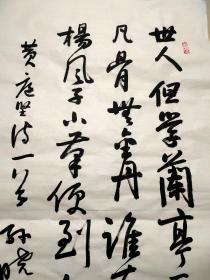 世人但学兰亭
凡骨无金丹谁
杨风子小草便到
黄庭坚诗一首
孙晓